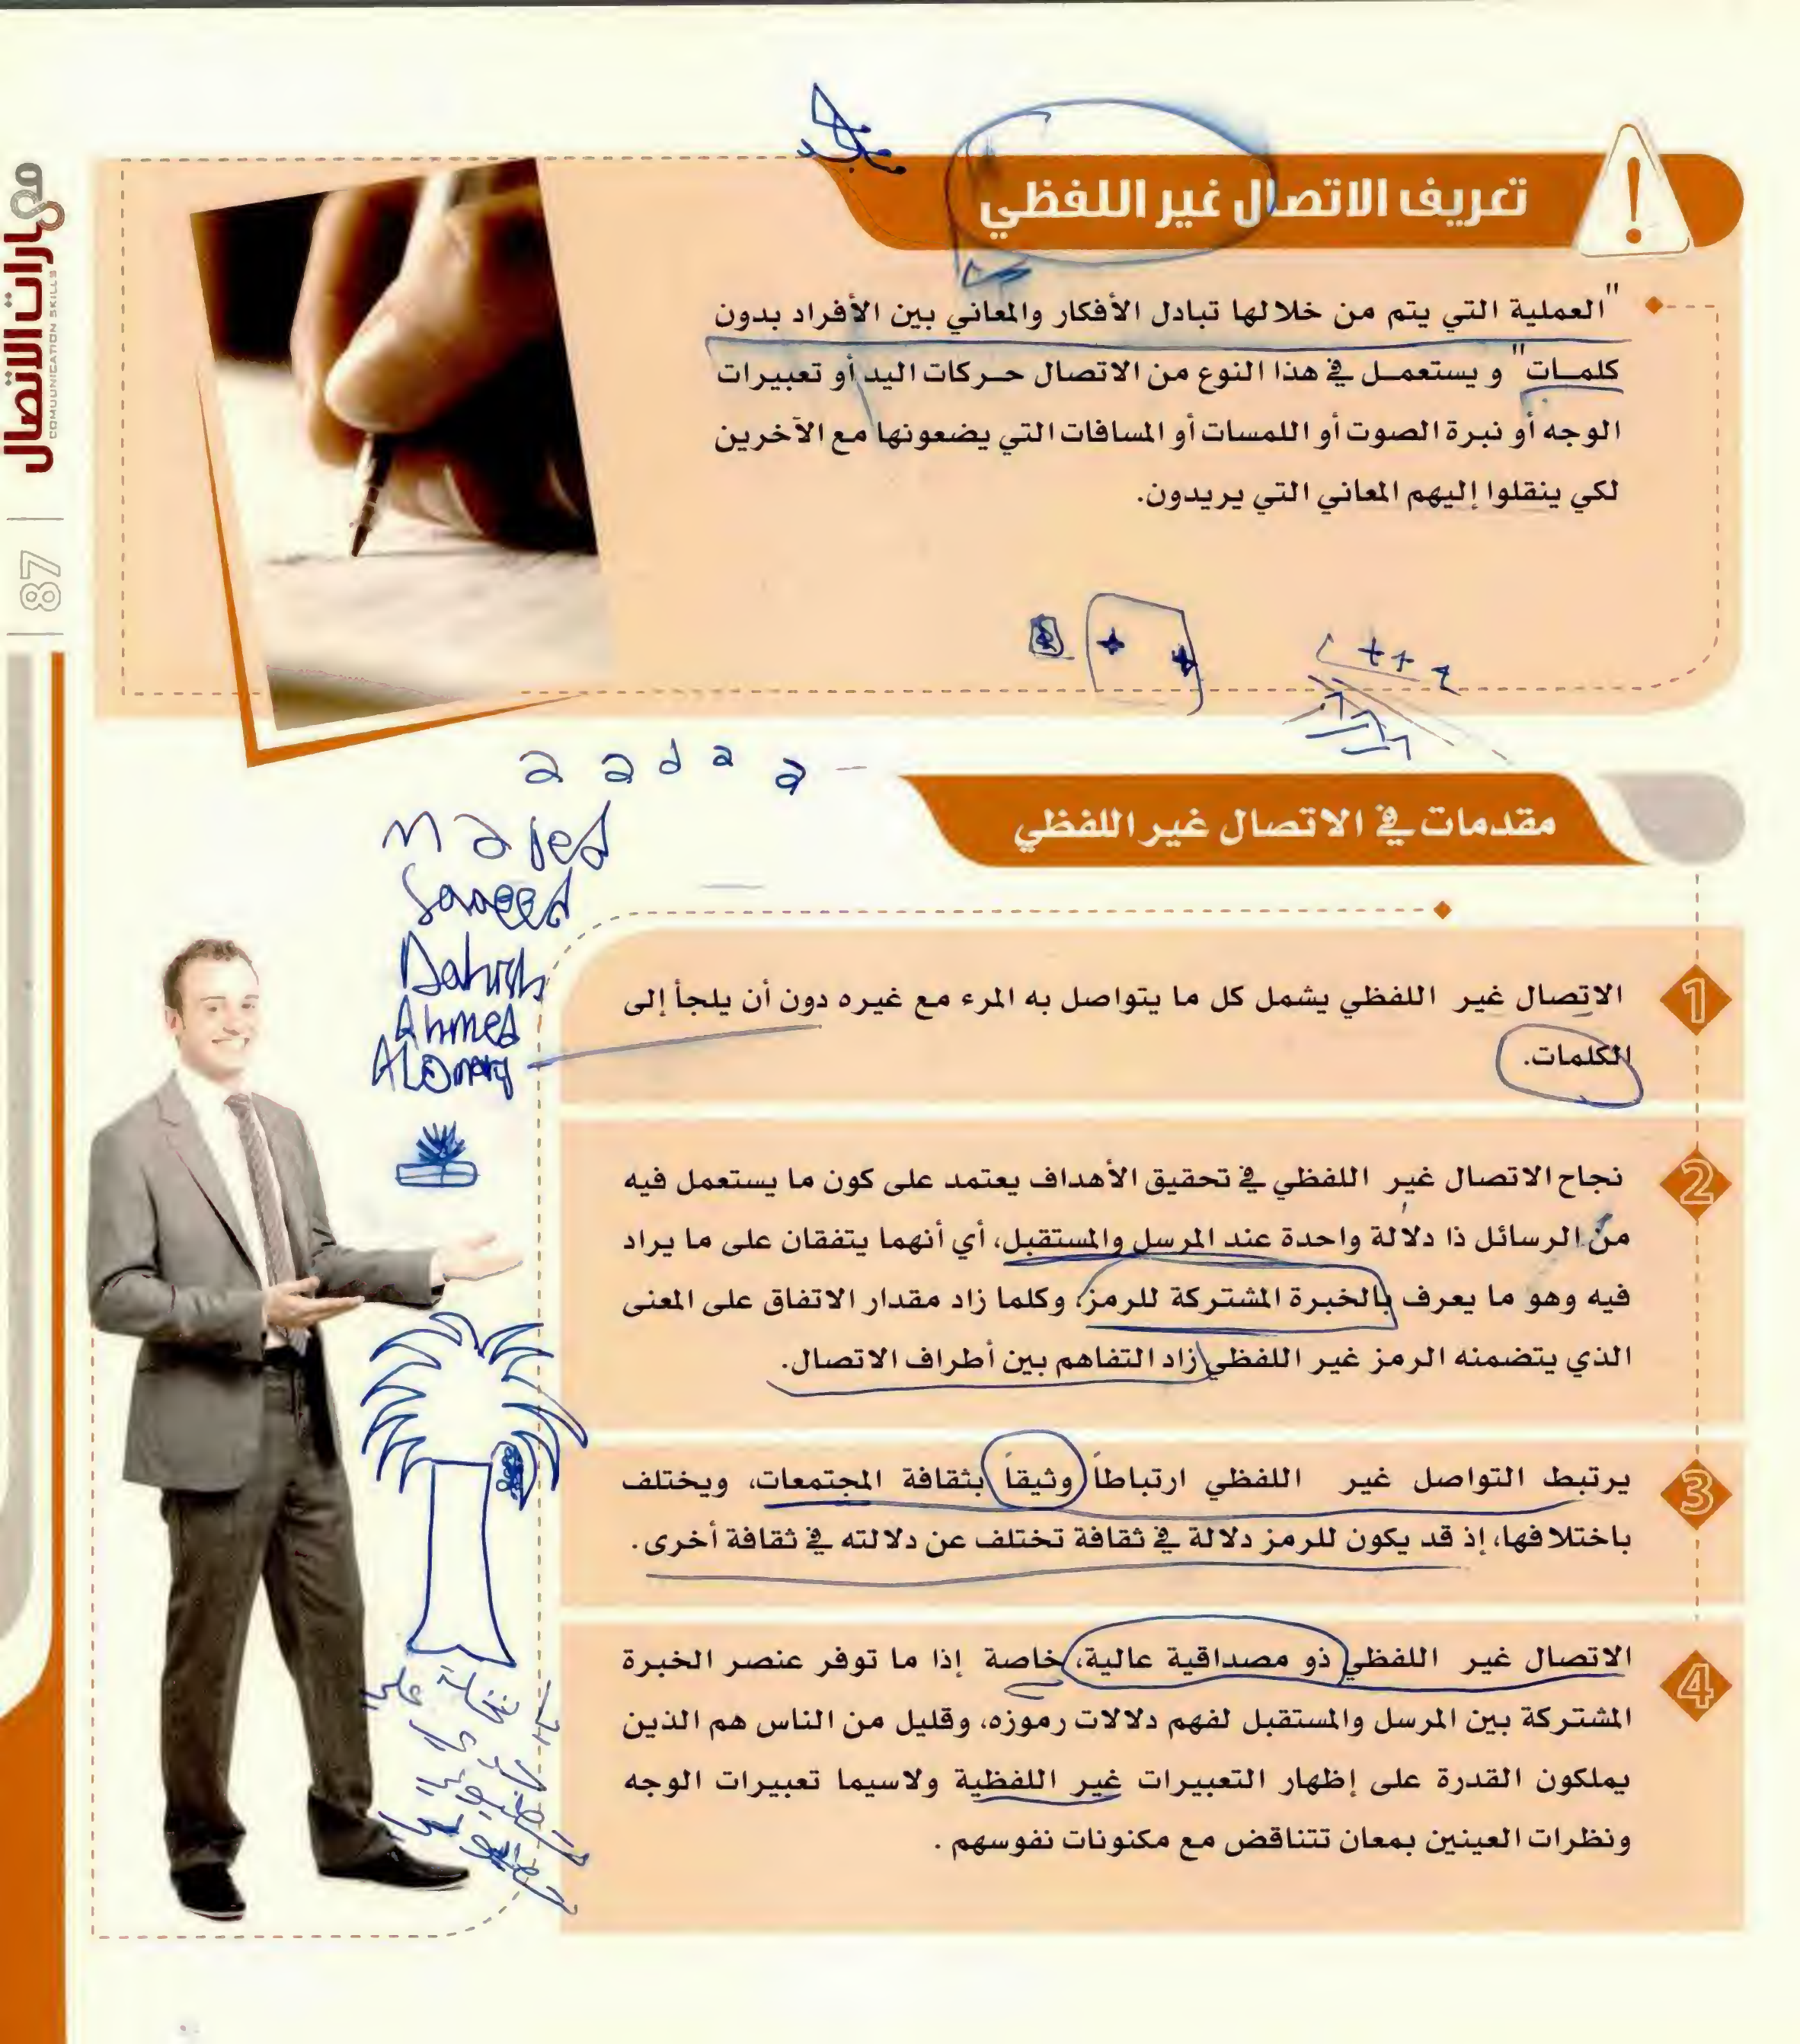 مهارات الاتصال
COMUUNICATION SKILLS
87
تعريف الاتصال غير اللفظي
"العملية التي يتم من خلالها تبادل الأفكار والمعاني بين الأفراد بدون
كلمـات" و يستعمـل في هذا النوع من الاتصال حـركات اليد أو تعبيرات
الوجه أو نبرة الصوت أو اللمسات أو المسافات التي يضعونها مع الآخرين
لكي ينقلوا إليهم المعاني التي يريدون.
a a d a a
majed
Saeed
Ahmed
مقدمات في الاتصال غير اللفظي
1
الاتصال غير اللفظي يشمل كل ما يتواصل به المرء مع غيره دون أن يلجأ إلى
الكلمات.
2
نجاح الاتصال غير اللفظي في تحقيق الأهداف يعتمد على كون ما يستعمل فيه
من الرسائل ذا دلالة واحدة عند المرسل والمستقبل، أي أنهما يتفقان على ما يراد
فيه وهو ما يعرف بالخبرة المشتركة للرمز، وكلما زاد مقدار الاتفاق على المعنى
الذي يتضمنه الرمز غير اللفظي زاد التفاهم بين أطراف الاتصال.
3
يرتبط التواصل غير اللفظي ارتباطاً وثيقاً بثقافة المجتمعات، ويختلف
باختلافها، إذ قد يكون للرمز دلالة في ثقافة تختلف عن دلالته في ثقافة أخرى.
4
الاتصال غير اللفظي ذو مصداقية عالية، خاصة إذا ما توفر عنصر الخبرة
المشتركة بين المرسل والمستقبل لفهم دلالات رموزه، وقليل من الناس هم الذين
يملكون القدرة على إظهار التعبيرات غير اللفظية ولاسيما تعبيرات الوجه
ونظرات العينين بمعان تتناقض مع مكنونات نفوسهم .